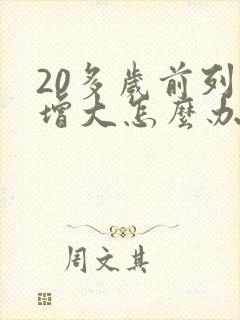 20多歲前列
增大怎麼办
周文其